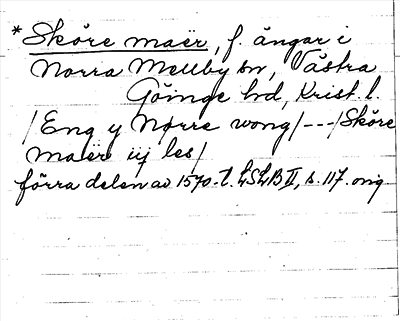 * Sköre maër, f. ängar i
Norra Mellby sn, Västra
Göinge hd, Krist. l.
/Eng y Nørre wong/---/Sköre
maër iij les/
förra delen av 1570-t. LSLB II, s. 117. orig